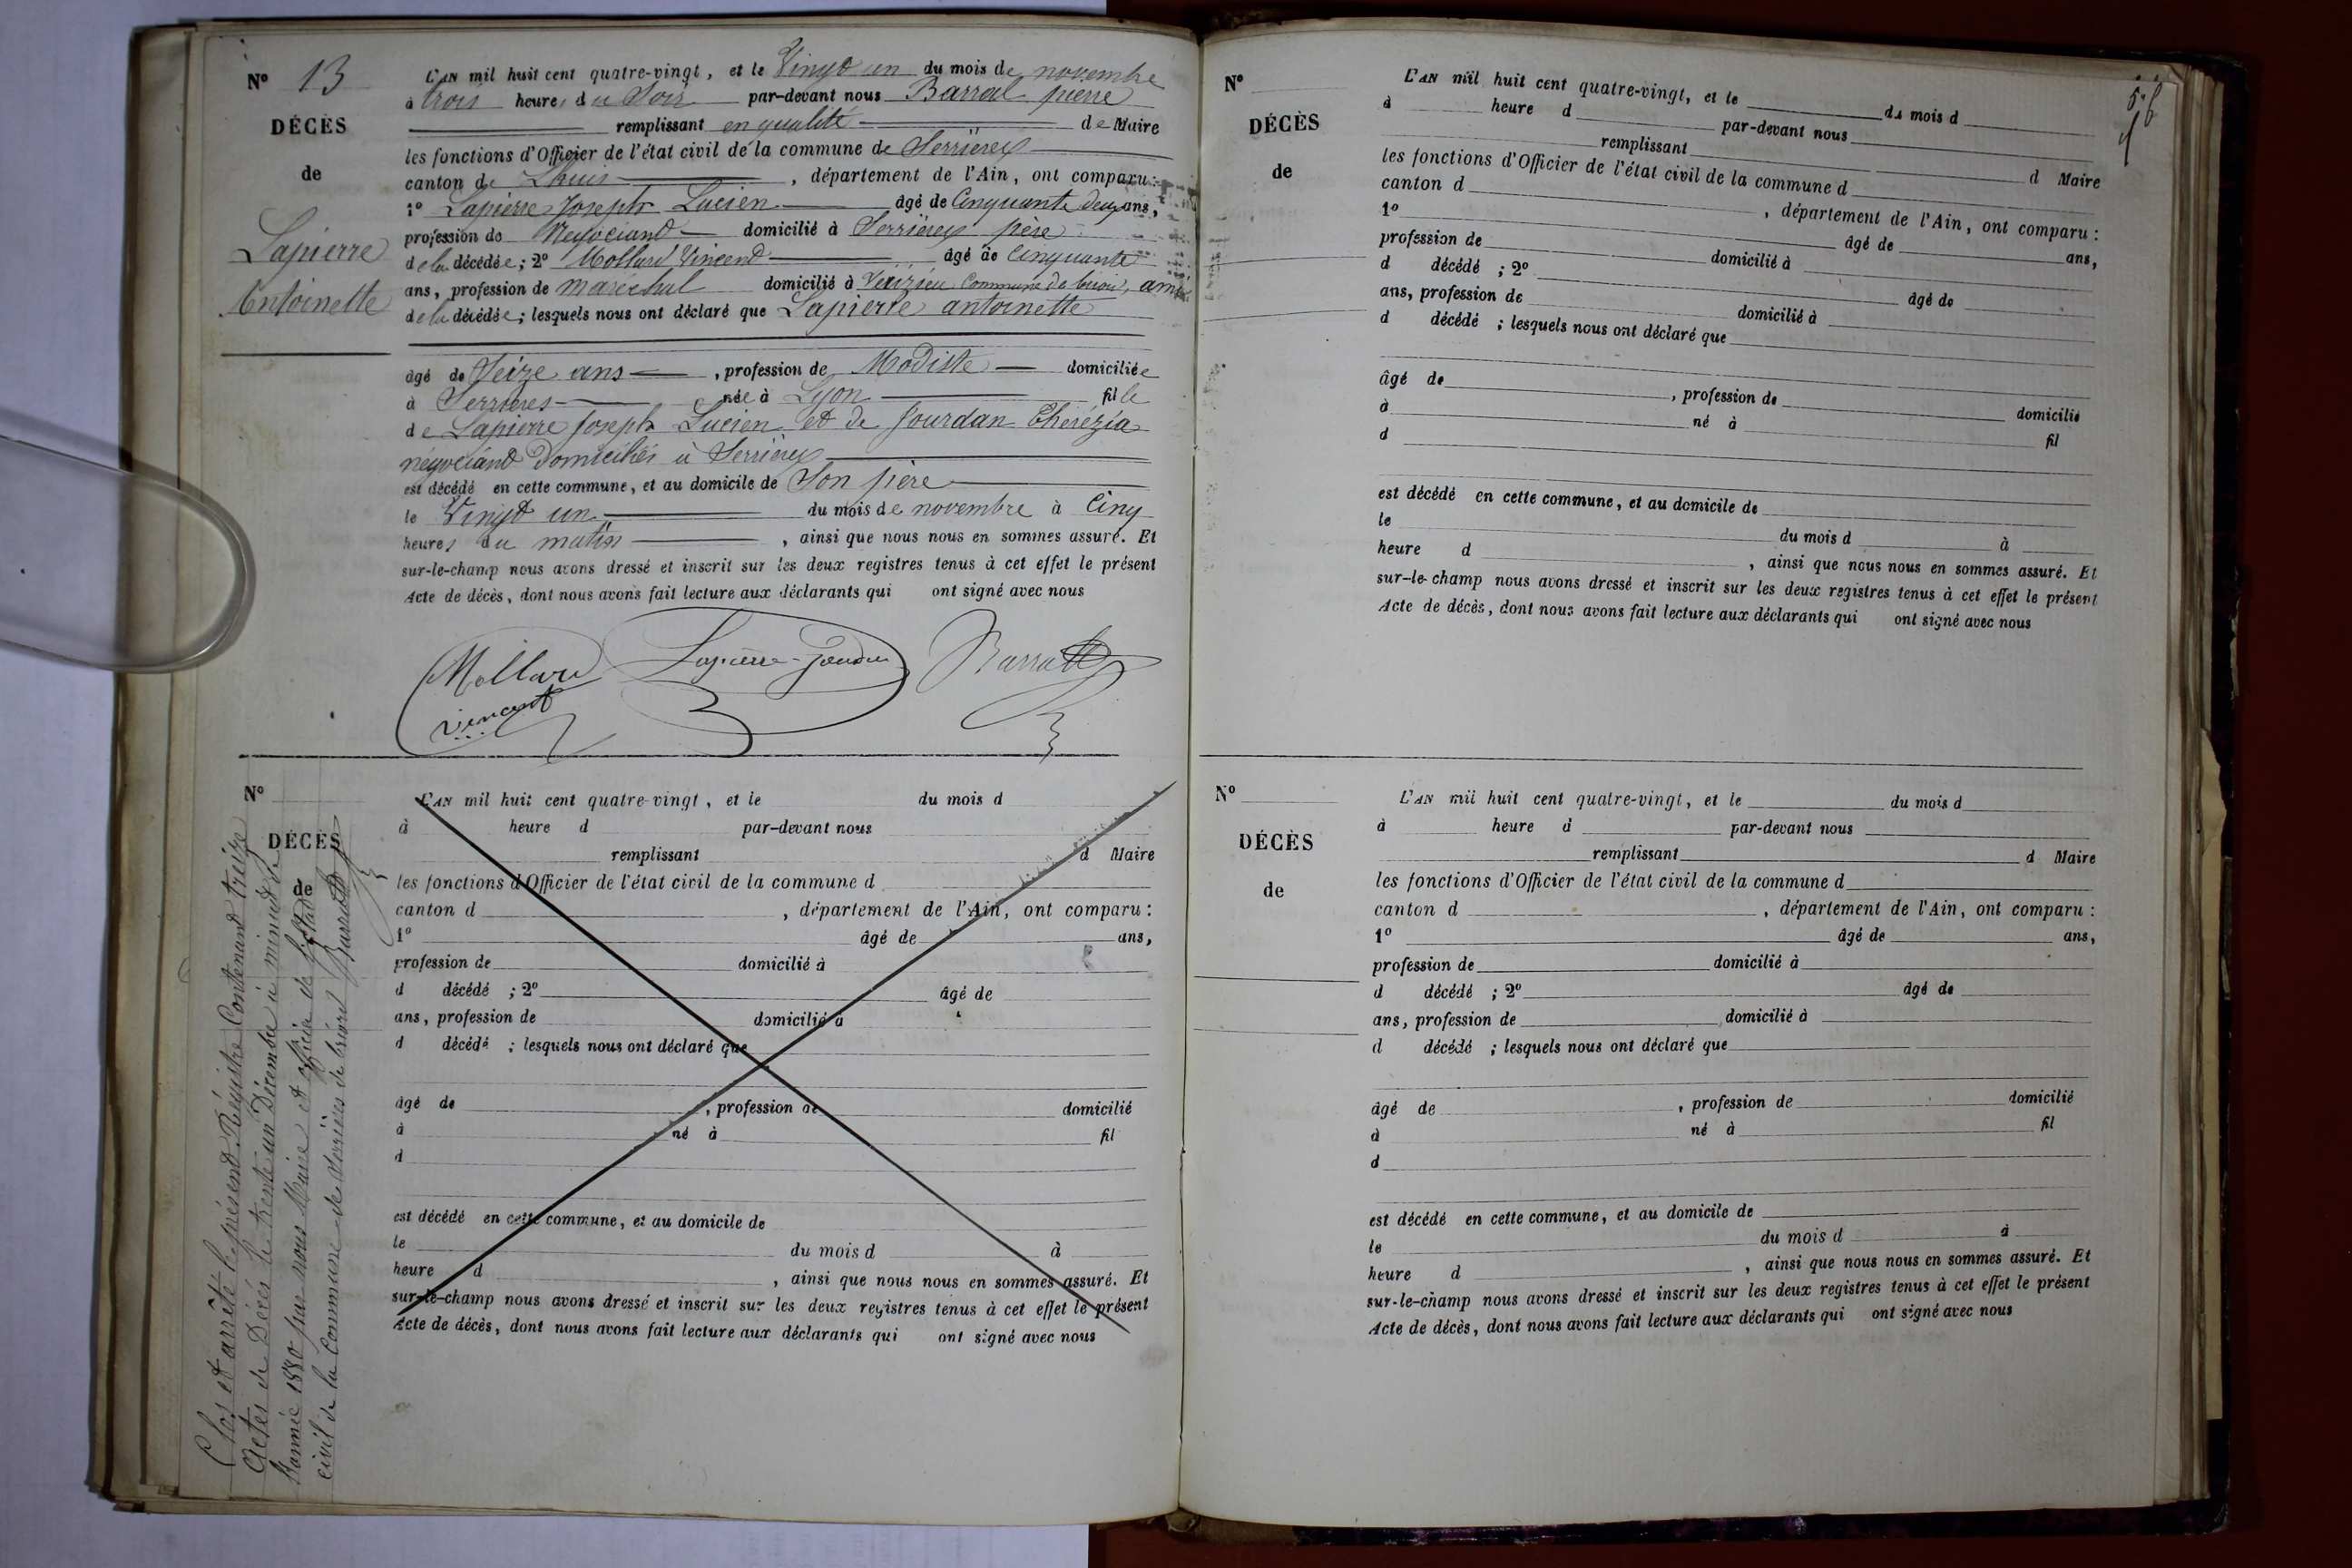 N° 13
DÉCÈS
de
Lapierre
Antoinette
L'AN mil huit cent quatre-vingt, et le Vingt un du mois de novembre
à trois heures du Soir par-devant nous Barral pierre
remplissant en qualité de Maire
les fonctions d'Officier de l'état civil de la commune de Serrières
canton de Lhuis, département de l'Ain, ont comparu :
1° Lapierre Joseph Lucien âgé de Cinquante deux ans,
profession de Négociant domicilié à Serrières père
de la décédée ; 2° Mollard Vincent âgé de Cinquante
ans, profession de maréchal domicilié à Vézizieu Commune de briord, ami
de la décédée ; lesquels nous ont déclaré que Lapierre antoinette
âgé de Seize ans, profession de Modiste domiciliée
à Serrières née à Lyon fille
de Lapierre Joseph Lucien et de Jourdan Thérézia
négociant domiciliés à Serrières
est décédé en cette commune, et au domicile de Son père
le Vingt un du mois de novembre à Cinq
heures du matin, ainsi que nous nous en sommes assuré. Et
sur-le-champ nous avons dressé et inscrit sur les deux registres tenus à cet effet le présent
Acte de décès, dont nous avons fait lecture aux déclarants qui ont signé avec nous
Mollard Lapierre-Jourdan Barral
Vincent
N°
DÉCÈS
de
L'AN mil huit cent quatre-vingt, et le du mois d
à heure d par-devant nous
remplissant d Maire
les fonctions d'Officier de l'état civil de la commune d
canton d , département de l'Ain, ont comparu :
1° âgé de ans,
profession de domicilié à
d décédé ; 2° âgé de
ans, profession de domicilié à
d décédé ; lesquels nous ont déclaré que
âgé de , profession de domicilié
à né à fil
d
est décédé en cette commune, et au domicile de
le du mois d à
heure d , ainsi que nous nous en sommes assuré. Et
sur-le-champ nous avons dressé et inscrit sur les deux registres tenus à cet effet le présent
Acte de décès, dont nous avons fait lecture aux déclarants qui ont signé avec nous
Clos et arrêté le présent Régistre Contenant treize
Actes de Décès le trente un Décembre à minuit de
l'année 1880 par nous Maire et officier de l'état
civil de la Commune de Serrières de briord Barral
N°
DÉCÈS
de
L'AN mil huit cent quatre-vingt, et le du mois d
à heure d par-devant nous
remplissant d Maire
les fonctions d'Officier de l'état civil de la commune d
canton d , département de l'Ain, ont comparu :
1° âgé de ans,
profession de domicilié à
d décédé ; 2° âgé de
ans, profession de domicilié à
d décédé ; lesquels nous ont déclaré que
âgé de , profession de domicilié
à né à fil
d
est décédé en cette commune, et au domicile de
le du mois d à
heure d , ainsi que nous nous en sommes assuré. Et
sur-le-champ nous avons dressé et inscrit sur les deux registres tenus à cet effet le présent
Acte de décès, dont nous avons fait lecture aux déclarants qui ont signé avec nous
N°
DÉCÈS
de
L'AN mil huit cent quatre-vingt, et le du mois d
à heure d par-devant nous
remplissant d Maire
les fonctions d'Officier de l'état civil de la commune d
canton d , département de l'Ain, ont comparu :
1° âgé de ans,
profession de domicilié à
d décédé ; 2° âgé de
ans, profession de domicilié à
d décédé ; lesquels nous ont déclaré que
âgé de , profession de domicilié
à né à fil
d
est décédé en cette commune, et au domicile de
le du mois d à
heure d , ainsi que nous nous en sommes assuré. Et
sur-le-champ nous avons dressé et inscrit sur les deux registres tenus à cet effet le présent
Acte de décès, dont nous avons fait lecture aux déclarants qui ont signé avec nous